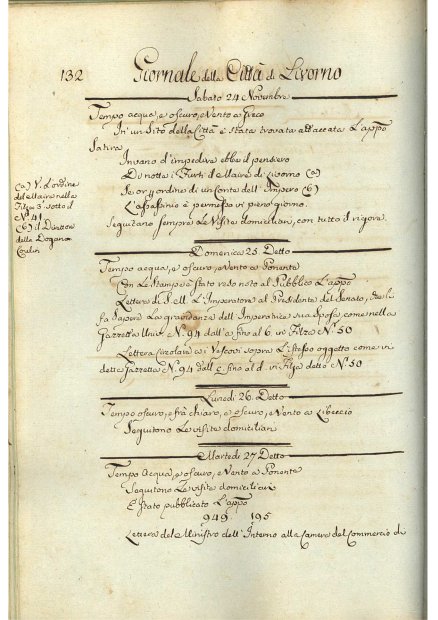 132 Giornale della Città di Livorno
Sabato 24 Novembre
Tempo acqua, e oscuro, e Vento a Greco
In' un Sito della Città è stata trovata attaccata L'app.º
Satira
Invano d'impedire ebbe il pensiero
Di notte i Furti il Maire di Livorno (a)
Se or p ordine di un Conte dell' Impero (b)
L'assassinio è permesso in pieno giorno.
Seguitano sempre Le Visite domiciliari, con tutto il rigore.
(a) V. L'ordine
del Maire nella
Filza 3ª sotto il
Nº 41
(b) il Direttore
delle Dogane
Coulin
Domenica 25 Detto
Tempo acqua, e oscuro, e Vento a Ponente
Con Le Stampe è Stato reso noto al Pubblico L'app.º
Lettera di S. M. L'Imperatore al Presidente del Senato, che li
fa Sapere La gravidanza dell' Imperatrice sua Sposa come nella
Gazzetta Univ. Nº 94 dall' a fino al b in Filza Nº 50
Lettera Circolare ai Vescovi sopra L'istesso oggetto come in
detta Gazzetta Nº 94 dall c fino al d in Filza detto Nº 50
Lunedi 26 Detto
Tempo oscuro, e frà chiaro, e oscuro, e Vento a Libeccio
Seguitono Le visite domiciliari
Martedi 27 Detto
Tempo Acqua, e oscuro, e Vento a Ponente
Seguitono Le visite domiciliari
È Stato pubblicato L'app.º
949 195
Lettera del Ministro dell' Interno alla Camera del Commercio di